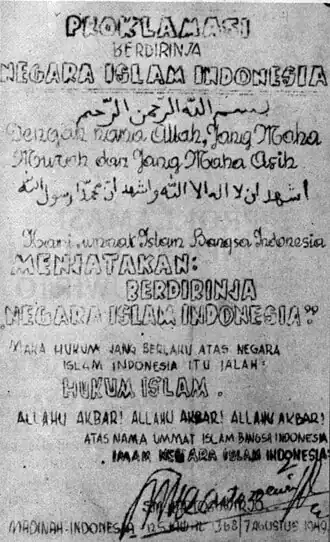 PROKLAMASI
BERDIRINJA
NEGARA ISLAM INDONESIA
بسم الله الرحمن الرحيم
Dengan nama Allah, Jang Maha
Murah dan Jang Maha Asih
اشهد ان لا اله الا الله واشهد ان محمدا رسول الله
Kami, ummat Islam Bangsa Indonesia
MENJATAKAN:
BERDIRINJA
„NEGARA ISLAM INDONESIA”
MAKA HUKUM JANG BERLAKU ATAS NEGARA
ISLAM INDONESIA ITU JALAH:
HUKUM ISLAM.
ALLAHU AKBAR! ALLAHU AKBAR! ALLAHU AKBAR!
ATAS NAMA UMMAT ISLAM BANGSA INDONESIA
IMAM NEGARA ISLAM INDONESIA:
MADINAH-INDONESIA 12 SJAWAL 1368/7 AGUSTUS 1949